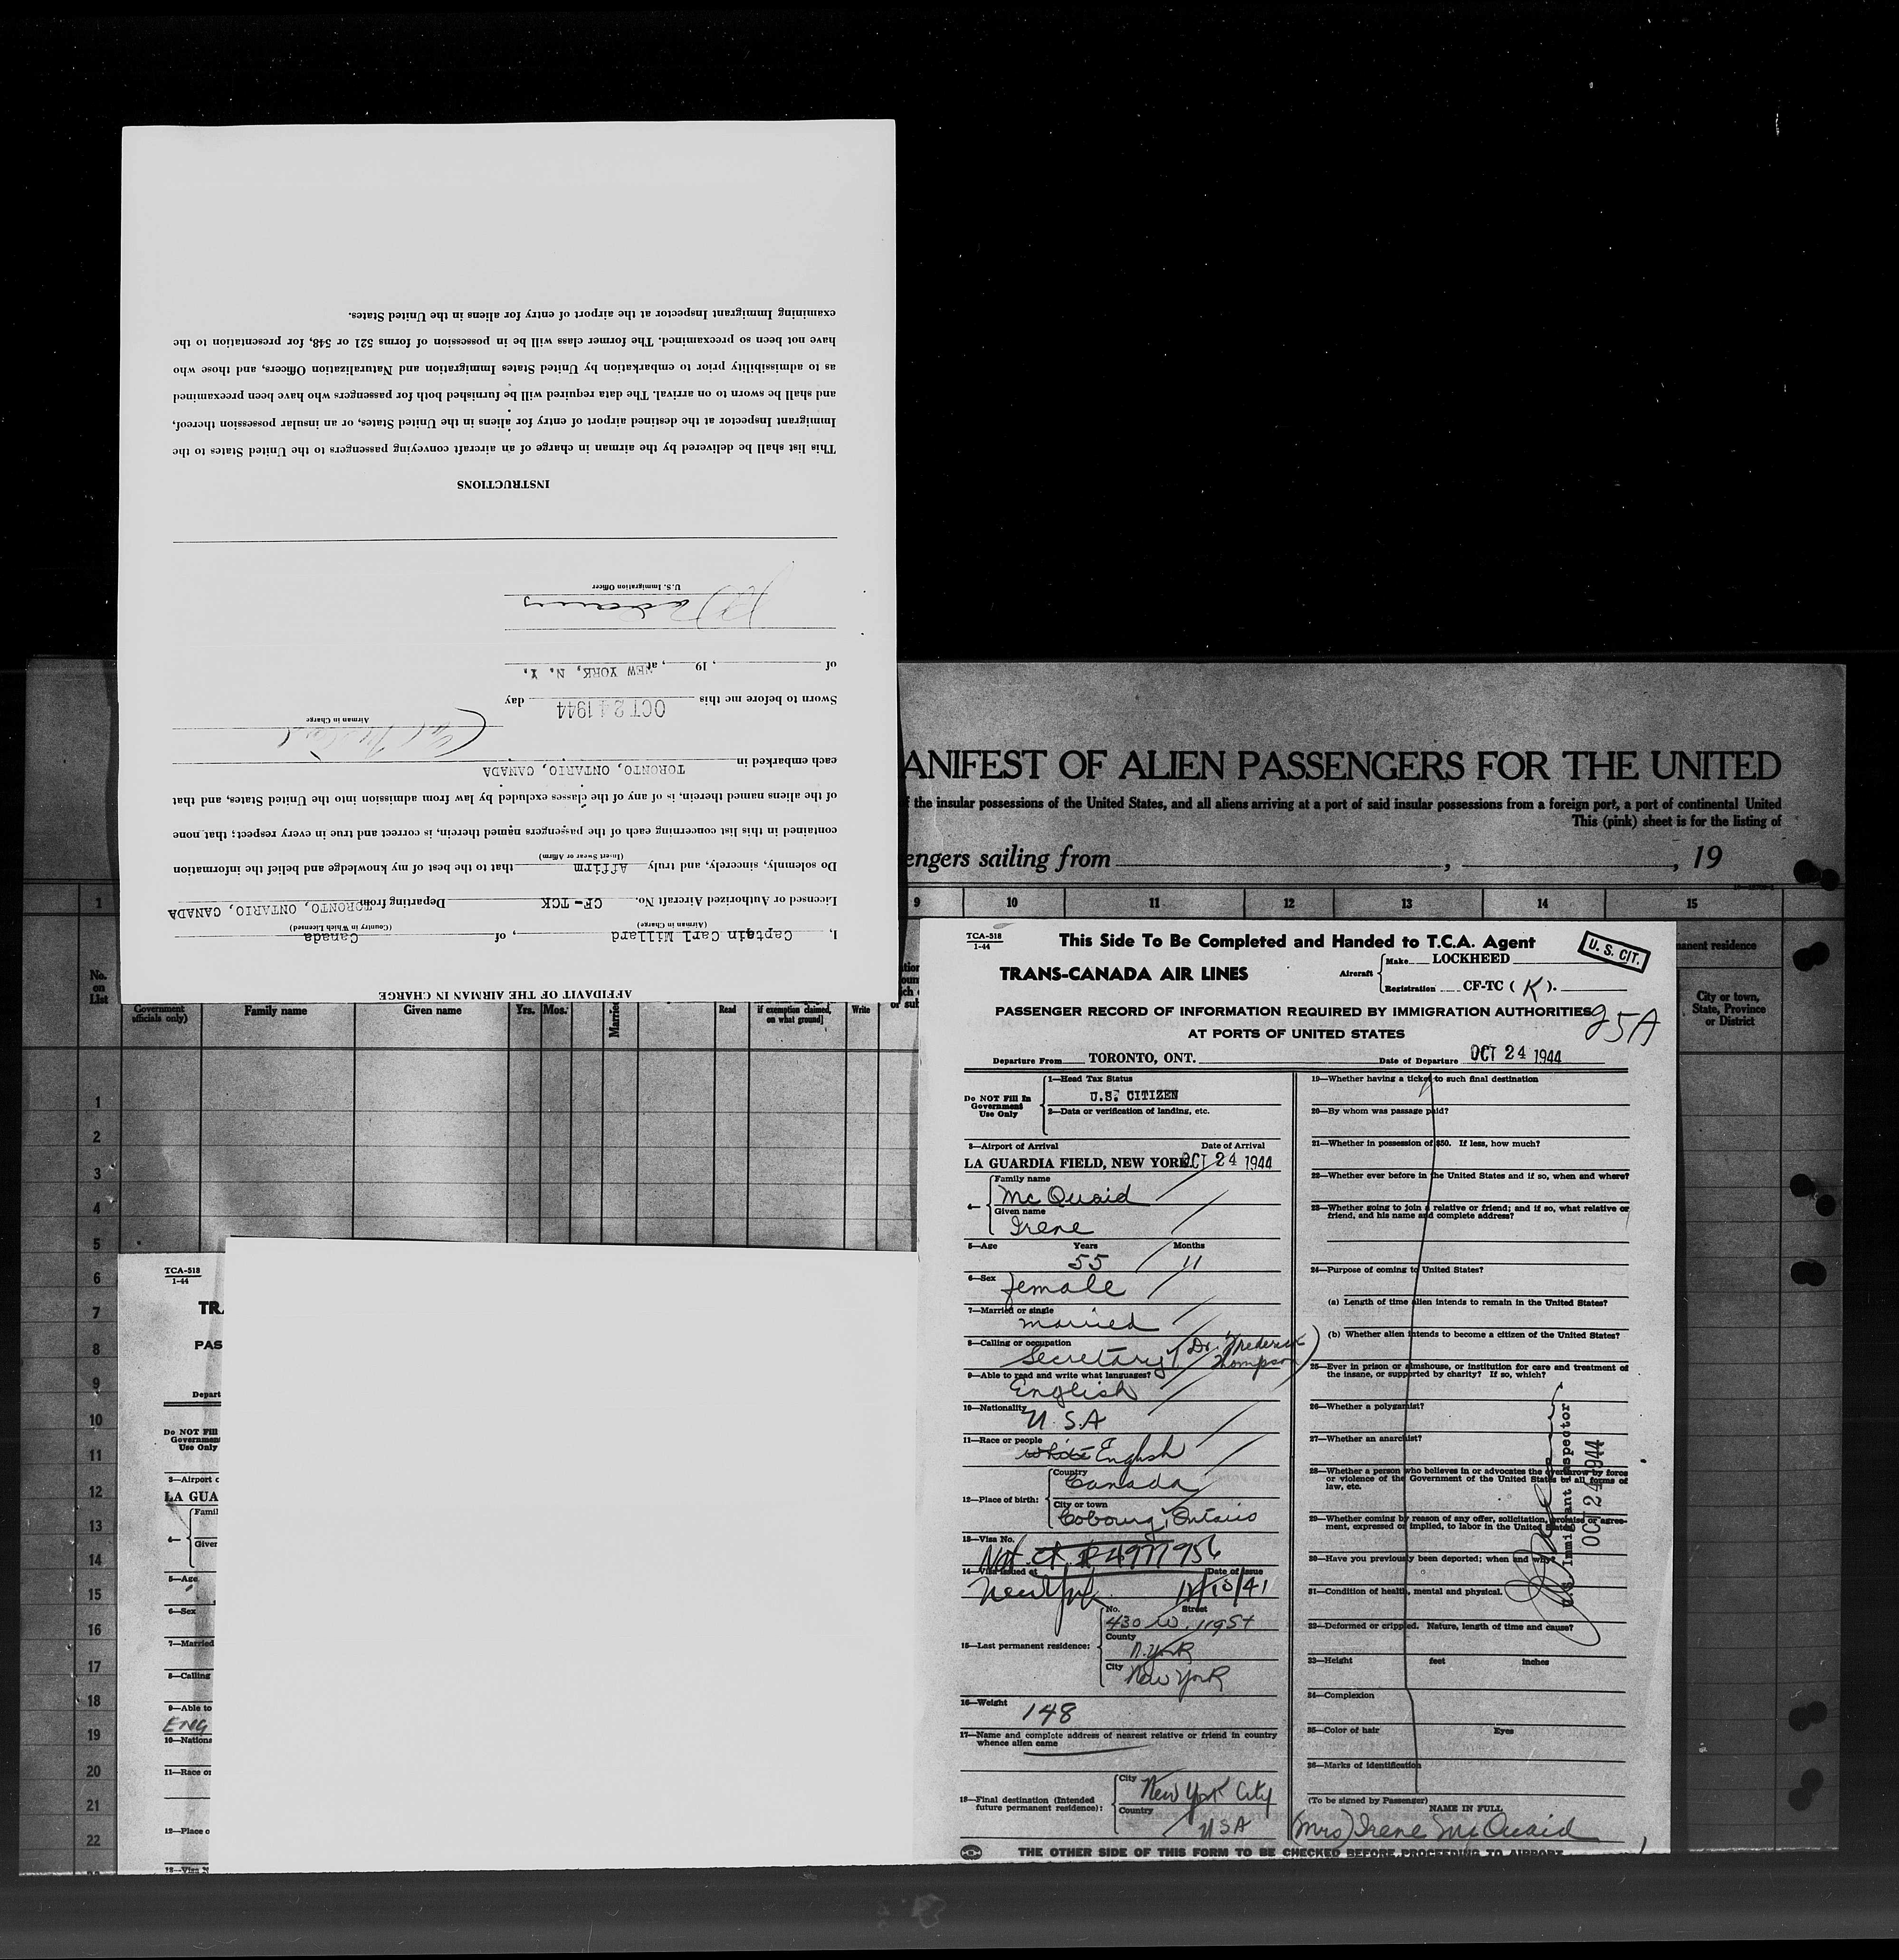 AFFIDAVIT OF THE AIRMAN IN CHARGE
I, Captain Carl Millard, of Canada
(Airman in Charge) (Country in Which Licensed)
Licensed or Authorized Aircraft No. CF-TCK Departing from TORONTO, ONTARIO, CANADA
Do solemnly, sincerely, and truly Affirm that to the best of my knowledge and belief the information
(Insert Swear or Affirm)
contained in this list concerning each of the passengers named therein, is correct and true in every respect; that none
of the aliens named therein, is of any of the classes excluded by law from admission into the United States, and that
each embarked in TORONTO, ONTARIO, CANADA
Carl Millard
Airman in Charge
Sworn to before me this OCT 24 1944 day
of , 19 , at NEW YORK, N. Y.
U.S. Immigration Officer
INSTRUCTIONS
This list shall be delivered by the airman in charge of an aircraft conveying passengers to the United States to the
Immigrant Inspector at the destined airport of entry for aliens in the United States, or an insular possession thereof,
and shall be sworn to on arrival. The data required will be furnished both for passengers who have been preexamined
as to admissibility prior to embarkation by United States Immigration and Naturalization Officers, and those who
have not been so preexamined. The former class will be in possession of forms 521 or 548, for presentation to the
examining Immigrant Inspector at the airport of entry for aliens in the United States.
ANIFEST OF ALIEN PASSENGERS FOR THE UNITED
the insular possessions of the United States, and all aliens arriving at a port of said insular possessions from a foreign port, a port of continental United
This (pink) sheet is for the listing of
engers sailing from , , 19
1 9 10 11 12 13 14 15
No. on List
Government officials only)
Family name
Given name
Yrs. Mos.
Married
Read
if exemption claimed, on what ground]
Write
manent residence
City or town, State, Province or District
1
2
3
4
5
6
7
8
9
10
11
12
13
14
15
16
17
18
19
20
21
22
TCA-518
1-44
TR
PAS
Depart
Do NOT Fill
Government
Use Only
3—Airport o
LA GUA
4—
Famil
Given
5—Age
6—Sex
7—Married
8—Calling
9—Able to
ENG
10—Nationa
11—Race or
12—Place o
13—Visa N
TCA-518
1-44
This Side To Be Completed and Handed to T.C.A. Agent
U. S. CIT.
TRANS-CANADA AIR LINES
Aircraft
Make LOCKHEED
Registration CF-TC ( K ).
PASSENGER RECORD OF INFORMATION REQUIRED BY IMMIGRATION AUTHORITIES
25A
AT PORTS OF UNITED STATES
Departure From TORONTO, ONT. Date of Departure OCT 24 1944
Do NOT Fill In
Government
Use Only
1—Head Tax Status
U.S. CITIZEN
2—Data or verification of landing, etc.
3—Airport of Arrival Date of Arrival
LA GUARDIA FIELD, NEW YORK OCT 24 1944
4—
Family name
McQuaid
Given name
Irene
5—Age Years Months
55 11
6—Sex
female
7—Married or single
married
8—Calling or occupation
Secretary (Dr. Frederick Thompson)
9—Able to read and write what languages?
English
10—Nationality
U.S.A
11—Race or people
white English
12—Place of birth:
Country
Canada
City or town
Cobourg, Ontario
13—Visa No.
Nat. Ct. # 4977956
14—Visa issued at Date of Issue
New York 12/10/41
15—Last permanent residence:
No. Street
430 W. 119 St
County
N. York
City
New York
16—Weight
148
17—Name and complete address of nearest relative or friend in country
whence alien came
18—Final destination (Intended
future permanent residence):
City
New York City
Country
USA
19—Whether having a ticket to such final destination
20—By whom was passage paid?
21—Whether in possession of $50. If less, how much?
22—Whether ever before in the United States and if so, when and where?
23—Whether going to join a relative or friend; and if so, what relative or
friend, and his name and complete address?
24—Purpose of coming to United States?
(a) Length of time alien intends to remain in the United States?
(b) Whether alien intends to become a citizen of the United States?
25—Ever in prison or almshouse, or institution for care and treatment of
the insane, or supported by charity? If so, which?
26—Whether a polygamist?
27—Whether an anarchist?
28—Whether a person who believes in or advocates the overthrow by force
or violence of the Government of the United States or all forms of
law, etc.
29—Whether coming by reason of any offer, solicitation, promise or agree-
ment, expressed or implied, to labor in the United States?
30—Have you previously been deported; when and why?
31—Condition of health, mental and physical.
32—Deformed or crippled. Nature, length of time and cause?
33—Height feet inches
34—Complexion
35—Color of hair Eyes
36—Marks of identification
U.S. Immigrant Inspector
OCT 24 1944
(To be signed by Passenger)
NAME IN FULL
(Mrs) Irene McQuaid
THE OTHER SIDE OF THIS FORM TO BE CHECKED BEFORE PROCEEDING TO AIRPORT